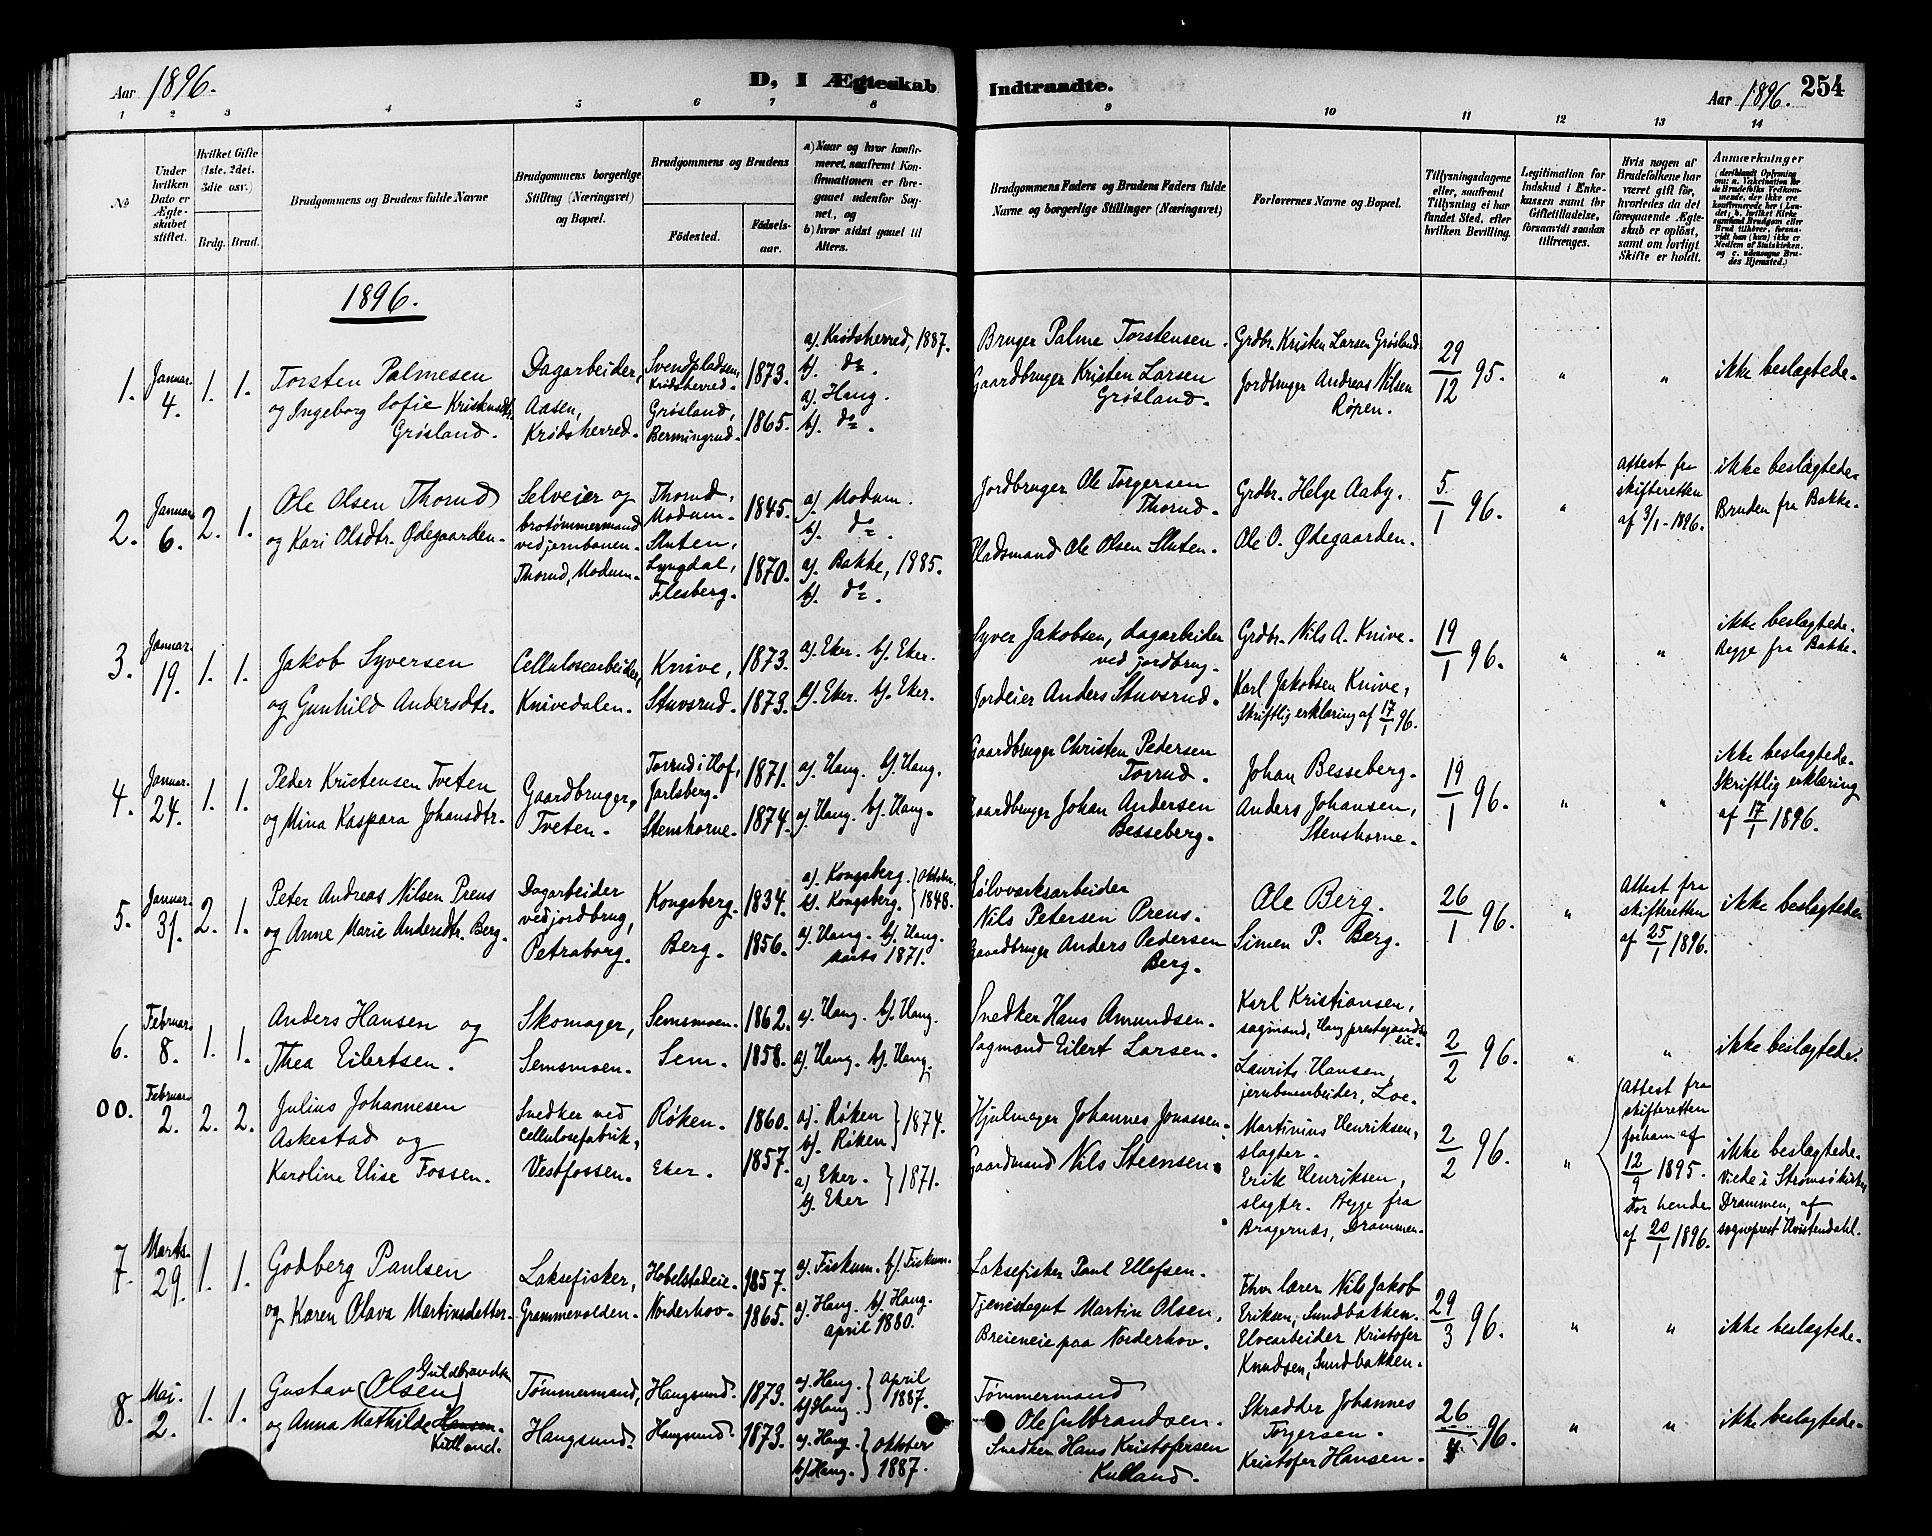 Aar 1896.
D, I Ægteskab
Indtraadte.
Aar 1896.
254
1 2 3 4 5 6 7 8
9 10 11 12 13 14
No
Under hvilken Dato er Ægteskabet stiftet.
Hvilket Gifte (1ste, 2det, 3die osv.)
Brdg. Brud.
Brudgommens og Brudens fulde Navne
Brudgommens borgerlige Stilling (Næringsvei) og Bopæl.
Brudgommens og Brudens
Fødested.
Fødselsaar.
a) Naar og hvor konfirmeret, saafremt Konfirmationen er foregaaet udenfor Sognet, og
b) hvor sidst gaaet til Alters.
Brudgommens Faders og Brudens Faders fulde Navne og borgerlige Stillinger (Næringsvei)
Forlovernes Navne og Bopæl.
Tillysningsdagene eller, saafremt Tillysning ei har fundet Sted, efter hvilken Bevilling.
Legitimation for Indskud i Enkekassen samt for Giftetilladelse, forsaavidt saadan tiltrænges.
Hvis nogen af Brudefolkene har været gift før, hvorledes da det foregaaende Ægteskab er opløst, samt om lovligt Skifte er holdt.
Anmærkninger
1896.
1.
Januar 4.
1. 1.
Torsten Palmesen
og Ingeborg Sofie Kristensdtr.
Grøsland.
Dagarbeider,
Aasen,
Krødsherred.
Svendpladsen,
Krødsherred.
Grøsland,
Bermingrud.
1873.
1865.
a). Krødsherred, 1887.
b). do.
a). Haug.
b). do.
Bruger Palme Torstensen.
Gaardbruger Kristen Larsen
Grøsland.
Grdbr. Kristen Larsen Grøsland.
Jordbruger Andreas Nilsen
Røpen.
29/12 95.
"
"
ikke beslægtede.
2.
Januar 6.
2. 1.
Ole Olsen Thorud
og Kari Olsdtr. Ødegaarden.
Selveier og
brotømmermand
ved jernbanen.
Thorud, Modum.
Thorud,
Modum.
Sluten,
Lyngdal,
Flesberg.
1845.
1870.
a). Modum.
b). do.
a). Bakke, 1885.
b). do.
Jordbruger Ole Torgersen
Thorud.
Pladsmand Ole Olsen Sluten.
Grdbr. Helge Aaby.
Ole O. Ødegaarden.
5/1 96.
"
Attest fra
skifteretten
af 3/1-1896.
ikke beslægtede.
Bruden fra Bakke.
3.
Januar 19.
1. 1.
Jakob Syversen
og Gunhild Andersdtr.
Cellulosearbeider,
Knivedalen.
Knive,
Stuvsrud.
1873.
1873.
a). Eker. b). Eker.
a). Eker. b). Eker.
Syver Jakobsen, dagarbeider
ved jordbrug.
Jordeier Anders Stuvsrud.
Grdbr. Nils A. Knive.
Karl Jakobsen Knive,
Skriftlig erklæring af 17/1 96.
19/1 96.
"
"
ikke beslægtede.
Begge fra Bakke.
4.
Januar 24.
1. 1.
Peder Kristensen Tveten
og Mina Kaspara Johansdtr.
Gaardbruger,
Tveten.
Torrud i Hof,
Jarlsberg.
Stenshorne.
1871.
1874.
a). Haug. b). Haug.
a). Haug. b). Haug.
Gaardbruger Christen Pedersen
Torrud.
Gaardbruger Johan Andersen
Besseberg.
Johan Besseberg.
Anders Johansen,
Stenshorne.
19/1 96.
"
"
ikke beslægtede.
Skriftlig erklæring
af 17/1 1896.
5.
Januar 31.
2. 1.
Peter Andreas Nilsen Prens
og Anne Marie Andersdtr. Berg.
Dagarbeider
ved jordbrug,
Petraborg.
Kongsberg.
Berg.
1834.
1856.
a). Kongsberg. } Oktober
b). Kongsberg. } 1848.
a). Haug. b). Haug.
Marts 1871.
Sølvværksarbeider
Nils Petersen Prens.
Gaardbruger Anders Pedersen
Berg.
Ole Berg.
Simen P. Berg.
26/1 96.
"
Attest fra
skifteretten
af 25/1 1896.
ikke beslægtede.
6.
Februar 8.
1. 1.
Anders Hansen og
Thea Eilertsen.
Skomager,
Semsmoen.
Semsmoen.
Sem.
1862.
1858.
a). Haug. b). Haug.
a). Haug. b). Haug.
Snedker Hans Amundsen.
Sagmand Eilert Larsen.
Karl Kristiansen,
sagmand, Haug prestegaards
eie.
Laurits Hansen,
jernbanearbeider, Loe.
2/2 96.
"
"
ikke beslægtede.
00.
Februar 2.
2. 2.
Julius Johannesen
Askestad og
Karoline Elise Fossen.
Snedker ved
Cellulosefabrik,
Vestfossen.
Røken.
Eker.
1860.
1857.
a). Røken } 1874.
b). Røken
a) Eker. } 1871.
b). Eker
Hjulmager Johannes Jonassen.
Gaardmand Nils Steensen.
Martinius Henriksen,
slagter.
Erik Henriksen,
slagter. Begge fra
Bragernæs, Drammen.
2/2 96.
"
Attest fra
skifteretten
for ham af
12/9 1895.
For hende
af 20/1 1896.
ikke beslægtede.
Viede i Strømsø kirke,
Drammen, af
sogneprest Hvistendahl.
7.
Marts 29.
1. 1.
Godberg Paulsen
og Karen Olava Martinsdatter.
Laksefisker,
Grammevolden.
Hobelstadeie.
Norderhov.
1857.
1865.
a). Fiskum. b). Fiskum.
a). Haug. b). Haug.
april 1880.
Laksefisker Paul Ellefsen.
Tjenestegut Martin Olsen,
Breieneie paa Norderhov.
Fhv. lærer Nils Jakob
Eriksen, Sundbakken.
Elvearbeider Kristofer
Knudsen, Sundbakken.
29/3 96.
"
"
ikke beslægtede.
8.
Mai 2.
1. 1.
Guldbrandsen
Gustav (Olsen)
og Anna Mathilde Hansen.
Kulland.
Tømmermand,
Haugsund.
Haugsund.
Haugsund.
1873.
1873.
a). Haug. } April
b). Haug } 1887.
a). Haug. } Oktober
b). Haug. } 1887.
Tømmermand
Ole Gulbrandsen.
Snedker Hans Kristofersen
Kulland.
Skrædder Johannes
Torgersen.
Kristofer Hansen.
26/4 96.
"
"
ikke beslægtede.